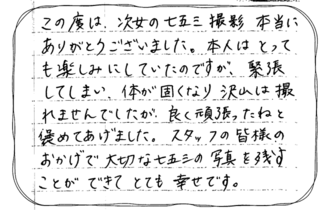 この度は、次女の七五三撮影 本当に
ありがとうございました。本人は とって
も楽しみにしていたのですが、緊張
してしまい、体が固くなり 沢山は 撮
れませんでしたが、良く頑張ったねと
褒めてあげました。スタッフの皆様の
おかげで 大切な七五三の 写真を残す
ことが できて とても 幸せです。